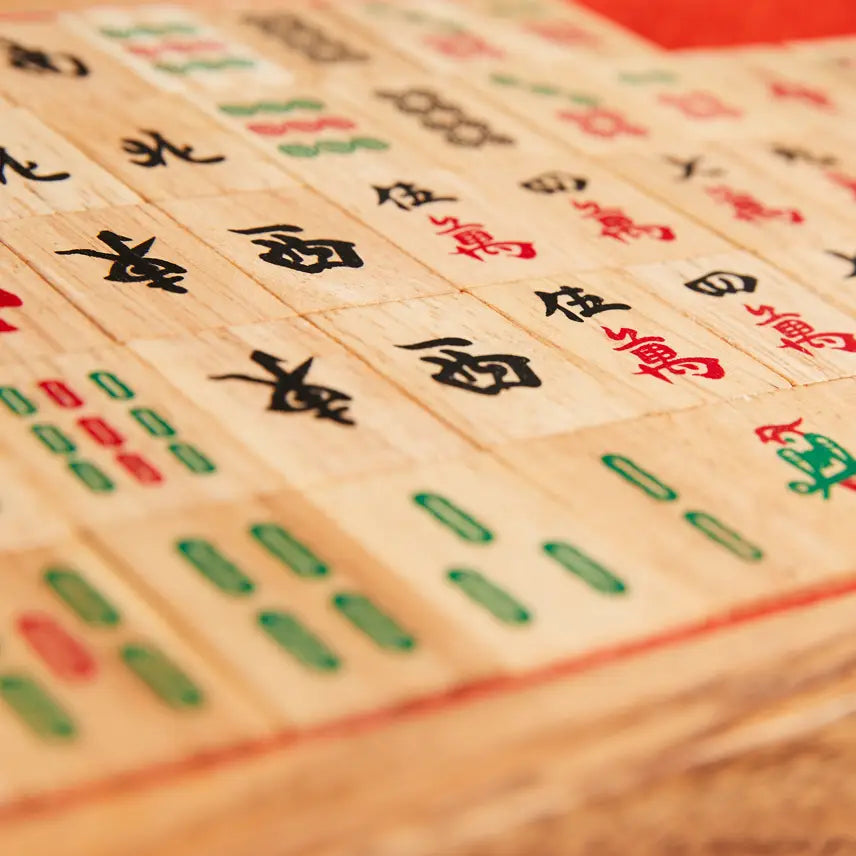 北
東 西 伍萬 四萬 六萬
東 西 伍萬 四萬